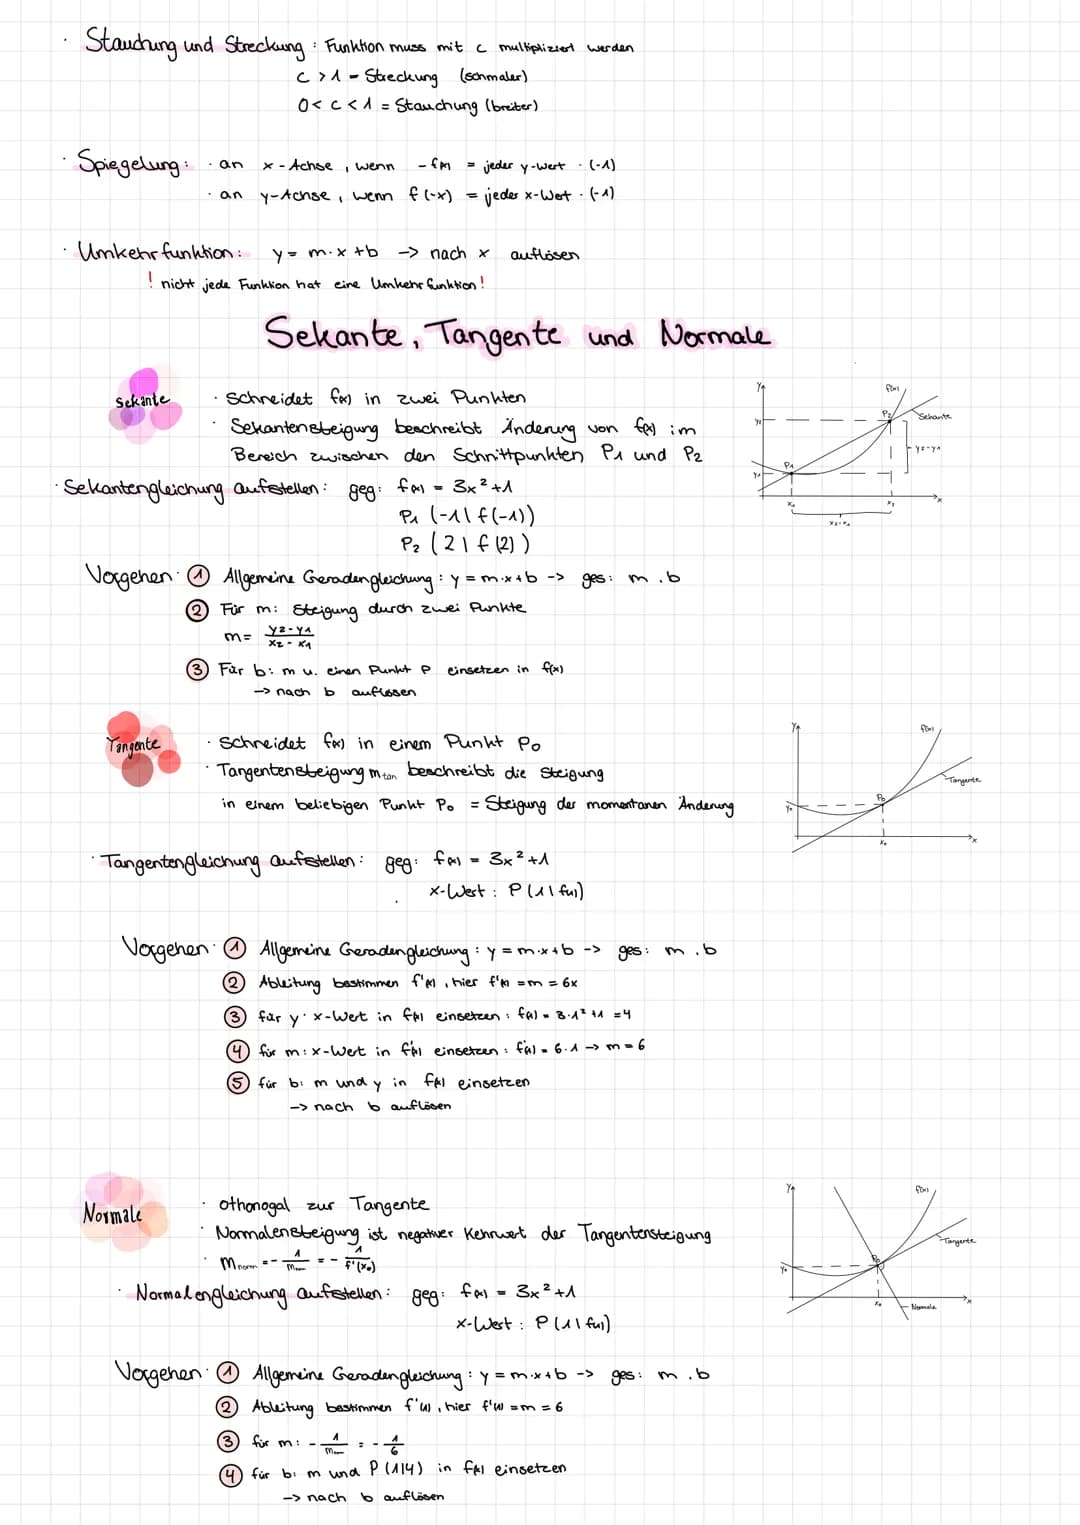 · Stauchung und Streckung : Funktion muss mit c multipliziert werden
c > 1 = Streckung (schmaler)
0 < c < 1 = Stauchung (breiter)
· Spiegelung: · an x-Achse, wenn -f(x) = jeder y-Wert · (-1)
· an y-Achse, wenn f(-x) = jeder x-Wert · (-1)
· Umkehrfunktion: y = m·x+b -> nach x auflösen
! nicht jede Funktion hat eine Umkehrfunktion!
Sekante, Tangente und Normale
Sekante
· Schneidet f(x) in zwei Punkten
· Sekantensteigung beschreibt Änderung von f(x) im
Bereich zwischen den Schnittpunkten P1 und P2
· Sekantengleichung aufstellen: geg: f(x) = 3x²+1
P1 (-1|f(-1))
P2 (2|f(2))
y
f(x)
P2
Sekante
y2
y2-y1
P1
y1
x1
x2
x
x2-x1
Vorgehen: 1 Allgemeine Geradengleichung: y = m·x+b -> ges: m, b
2 Für m: Steigung durch zwei Punkte
m = y2-y1 / x2-x1
3 Für b: m u. einen Punkt P einsetzen in f(x)
-> nach b auflösen
Tangente
· Schneidet f(x) in einem Punkt P0
· Tangentensteigung m tan beschreibt die Steigung
in einem beliebigen Punkt P0 = Steigung der momentanen Änderung
y
f(x)
Tangente
P0
y0
x0
x
· Tangentengleichung aufstellen: geg: f(x) = 3x²+1
x-Wert: P(1|f(1))
Vorgehen: 1 Allgemeine Geradengleichung: y = m·x+b -> ges: m, b
2 Ableitung bestimmen f'(x), hier f'(x) = m = 6x
3 für y: x-Wert in f(x) einsetzen: f(1) = 3·1²+1 = 4
4 für m: x-Wert in f'(x) einsetzen: f'(1) = 6·1 -> m = 6
5 für b: m und y in f(x) einsetzen
-> nach b auflösen
Normale
· othonogal zur Tangente
· Normalensteigung ist negativer Kehrwert der Tangentensteigung
· m norm = - 1/m tan = - 1/f'(x0)
· Normalengleichung aufstellen: geg: f(x) = 3x²+1
x-Wert: P(1|f(1))
y
f(x)
Tangente
P0
y0
x0
Normale
x
Vorgehen: 1 Allgemeine Geradengleichung: y = m·x+b -> ges: m, b
2 Ableitung bestimmen f'(x), hier f'(x) = m = 6
3 für m: - 1/m tan = - 1/6
4 für b: m und P(1|4) in f(x) einsetzen
-> nach b auflösen